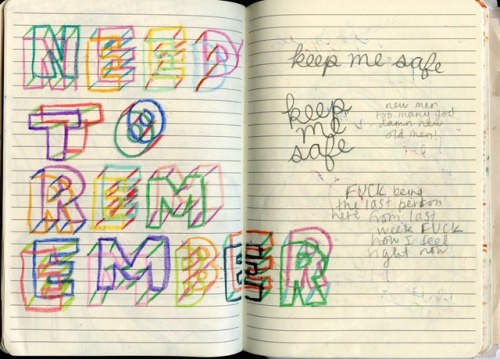 NEED
TO
REM
EMBER
keep me safe
keep
me
safe
new men
too many god
damn new
old men!
FUCK being
the last person
here from last
week FUCK
how I feel
right now